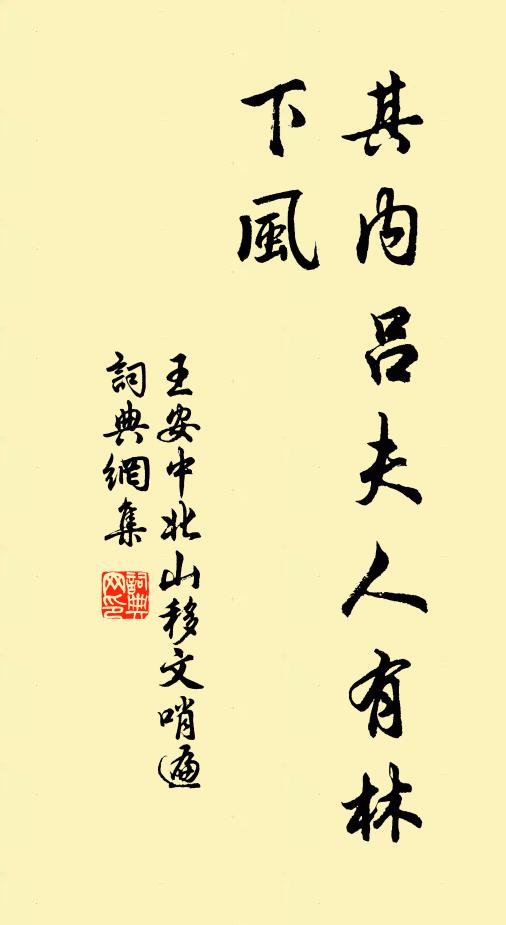 其内吕夫人有林
下風
王安中北山移文哨遍
詞典網集
詞典网印